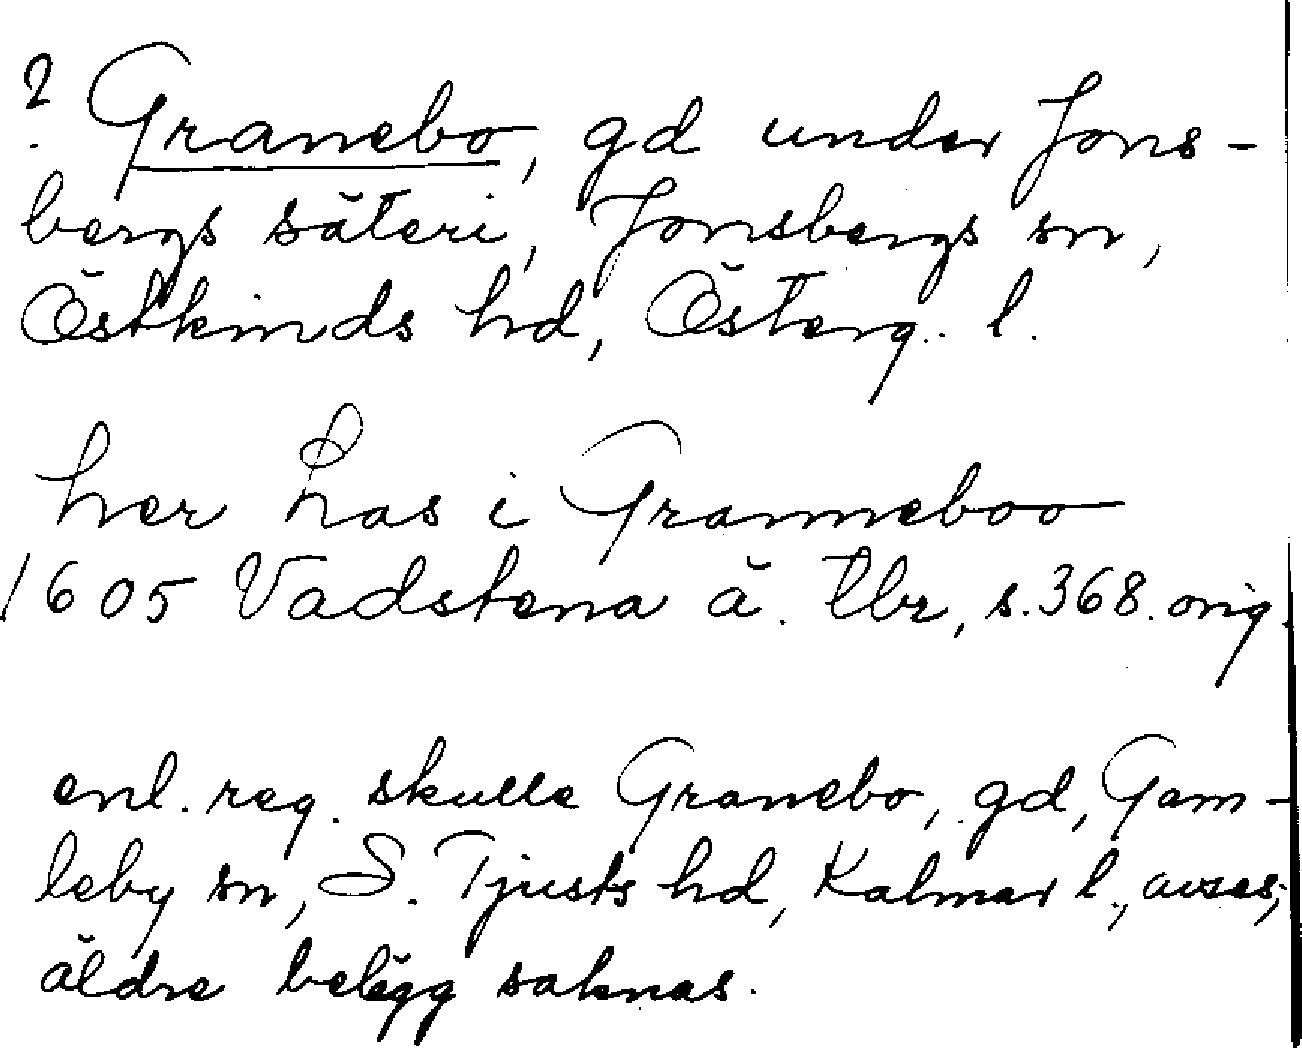 ? Granebo, gd under Jons-
bergs säteri, Jonsbergs sn,
Östkinds hd, Österg. l.
her Las i Granneboo
1605 Vadstena ä. tbr, s. 368. orig.
enl. reg. skulle Granebo, gd, Gam-
leby sn, S. Tjusts hd, Kalmar l., avses;
äldre belägg saknas.